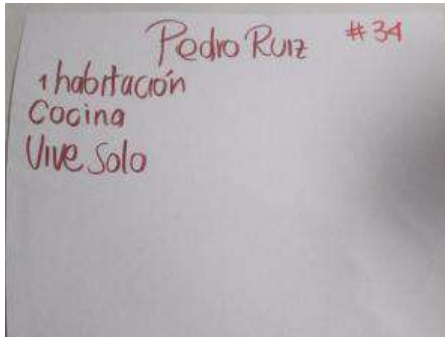 Pedro Ruiz #34
1 habitación
Cocina
Vive Solo